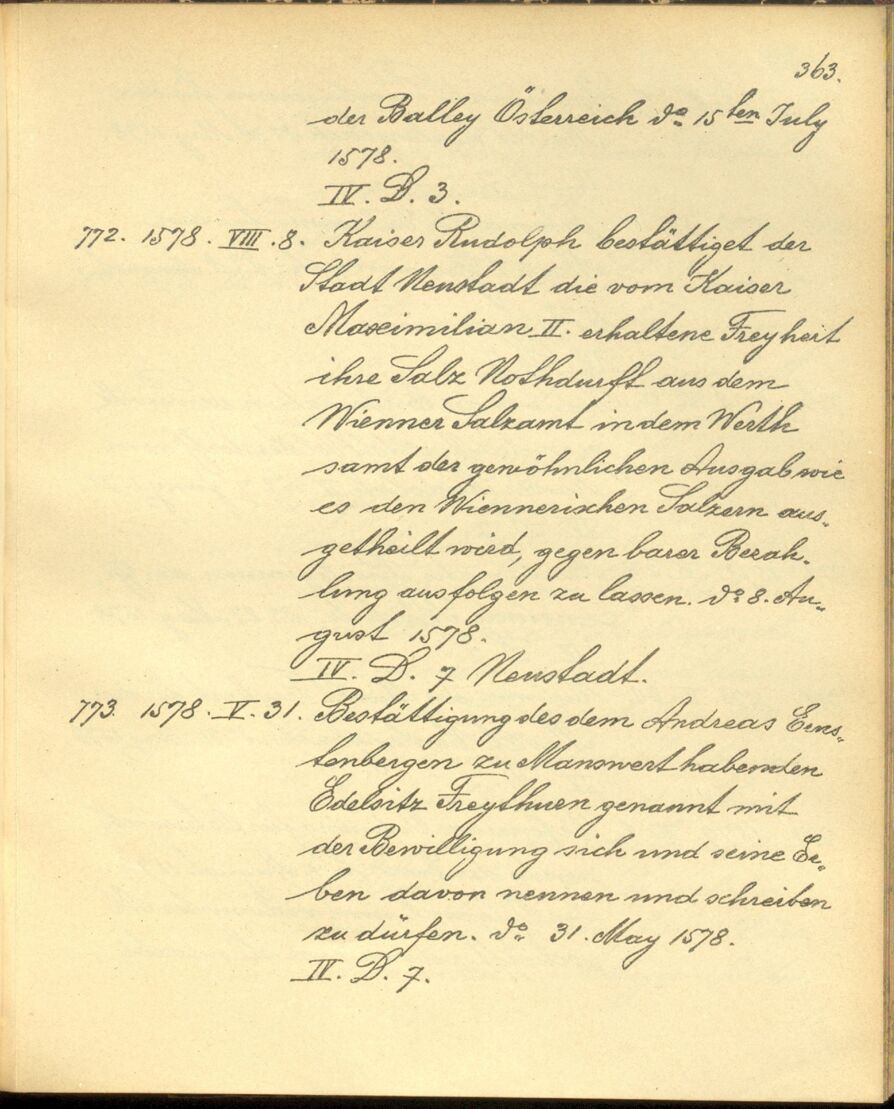 363.
der Balley Österreich do 15ten July
1578.
IV. D. 3.
772. 1578. VIII. 8. Kaiser Rudolph bestättiget der
Stadt Neustadt die vom Kaiser
Maximilian II. erhaltene Freyheit
ihre Salz Nothdurft aus dem
Wienner Salzamt in dem Werth
samt der gewöhnlichen Ausgab wie
es den Wiennerischen Salzern aus„
getheilt wird, gegen barer Bezah„
lung ausfolgen zu lassen. do 8. Au„
gust 1578.
IV. D. 7 Neustadt.
773. 1578. V. 31. Bestättigung des dem Andreas Erns„
tenbergen zu Manswert habenden
Edelsitz Freythuen genannt mit
der Bewilligung sich und seine Er„
ben davon nennen und schreiben
zu dürfen. do 31. May 1578.
IV. D. 7.